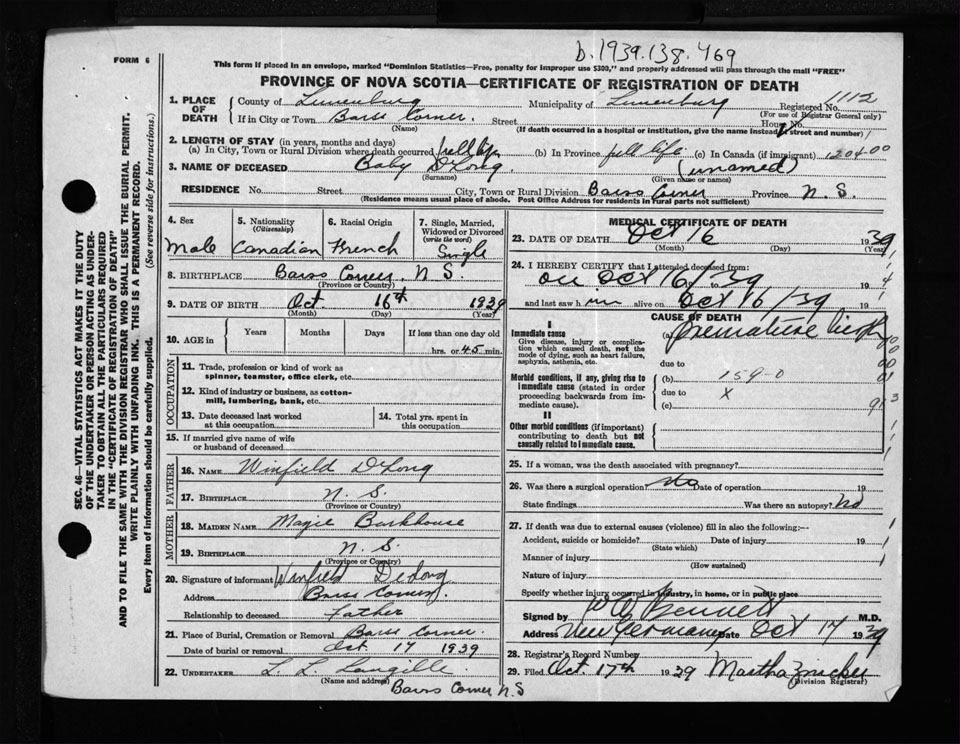 b. 1939.138.469
FORM 6
This form if placed in an envelope, marked "Dominion Statistics—Free, penalty for improper use $300," and properly addressed will pass through the mail "FREE"
PROVINCE OF NOVA SCOTIA—CERTIFICATE OF REGISTRATION OF DEATH
1. PLACE OF DEATH
County of Lunenburg Municipality of Lunenburg Registered No. 1112
(For use of Registrar General only)
If in City or Town Barss Corner. Street House No.
(Name) (If death occurred in a hospital or institution, give the name instead of street and number)
2. LENGTH OF STAY (in years, months and days)
(a) In City, Town or Rural Division where death occurred full life (b) In Province full life (c) In Canada (if immigrant) 120400
3. NAME OF DECEASED Baby DeLong. (unamed)
(Surname) (Given name or names)
RESIDENCE No. Street City, Town or Rural Division Barss Corner Province N. S.
(Residence means usual place of abode. Post Office Address for residents in rural parts not sufficient)
4. Sex
Male
5. Nationality
(Citizenship)
Canadian
6. Racial Origin
French
7. Single, Married, Widowed or Divorced
(write the word)
Single
8. BIRTHPLACE Barss Corner, N S.
(Province or Country)
9. DATE OF BIRTH Oct 16th 1939
(Month) (Day) (Year)
10. AGE in
Years Months Days If less than one day old
hrs. or 45 min.
OCCUPATION
11. Trade, profession or kind of work as
spinner, teamster, office clerk, etc.
12. Kind of industry or business, as cotton-
mill, lumbering, bank, etc.
13. Date deceased last worked
at this occupation
14. Total yrs. spent in
this occupation
15. If married give name of wife
or husband of deceased
FATHER
16. NAME Winfield DeLong
17. BIRTHPLACE N. S.
(Province or Country)
MOTHER
18. MAIDEN NAME Magie Barkhouse
19. BIRTHPLACE N. S.
(Province or Country)
20. Signature of informant Winfield DeLong
Address Barss Corner
Relationship to deceased father
21. Place of Burial, Cremation or Removal Barss Corner.
Date of burial or removal Oct. 17 1939
22. UNDERTAKER L. L. Langille
(Name and address)
Barss Corner N. S
MEDICAL CERTIFICATE OF DEATH
23. DATE OF DEATH Oct 16 1939
(Month) (Day) (Year)
24. I HEREBY CERTIFY that I attended deceased from:
on Oct 16/ to 39 19
and last saw him alive on Oct 16/39 19
CAUSE OF DEATH
I
Immediate cause
Give disease, injury or complication which caused death, not the mode of dying, such as heart failure, asphyxia, asthenia, etc.
(a) Premature birth
due to
Morbid conditions, if any, giving rise to immediate cause (stated in order proceeding backwards from immediate cause).
(b) 159-0
due to X
(c)
II
Other morbid conditions (if important) contributing to death but not causally related to immediate cause.
25. If a woman, was the death associated with pregnancy?
26. Was there a surgical operation? No Date of operation 19
State findings Was there an autopsy? No
27. If death was due to external causes (violence) fill in also the following:—
Accident, suicide or homicide? Date of injury 19
(State which)
Manner of injury
(How sustained)
Nature of injury
Specify whether injury occurred in industry, in home, or in public place
Signed by Bennett M.D.
Address New Germany Date Oct 17 1939
28. Registrar's Record Number
29. Filed Oct. 17th 1939 Martha Zwicker
(Division Registrar)
SEC. 46—VITAL STATISTICS ACT MAKES IT THE DUTY
OF THE UNDERTAKER OR PERSON ACTING AS UNDER-
TAKER TO OBTAIN ALL THE PARTICULARS REQUIRED
IN THE "CERTIFICATE OF REGISTRATION OF DEATH"
AND TO FILE THE SAME WITH THE DIVISION REGISTRAR WHO SHALL ISSUE THE BURIAL PERMIT.
WRITE PLAINLY WITH UNFADING INK. THIS IS A PERMANENT RECORD.
Every item of information should be carefully supplied. (See reverse side for instructions.)